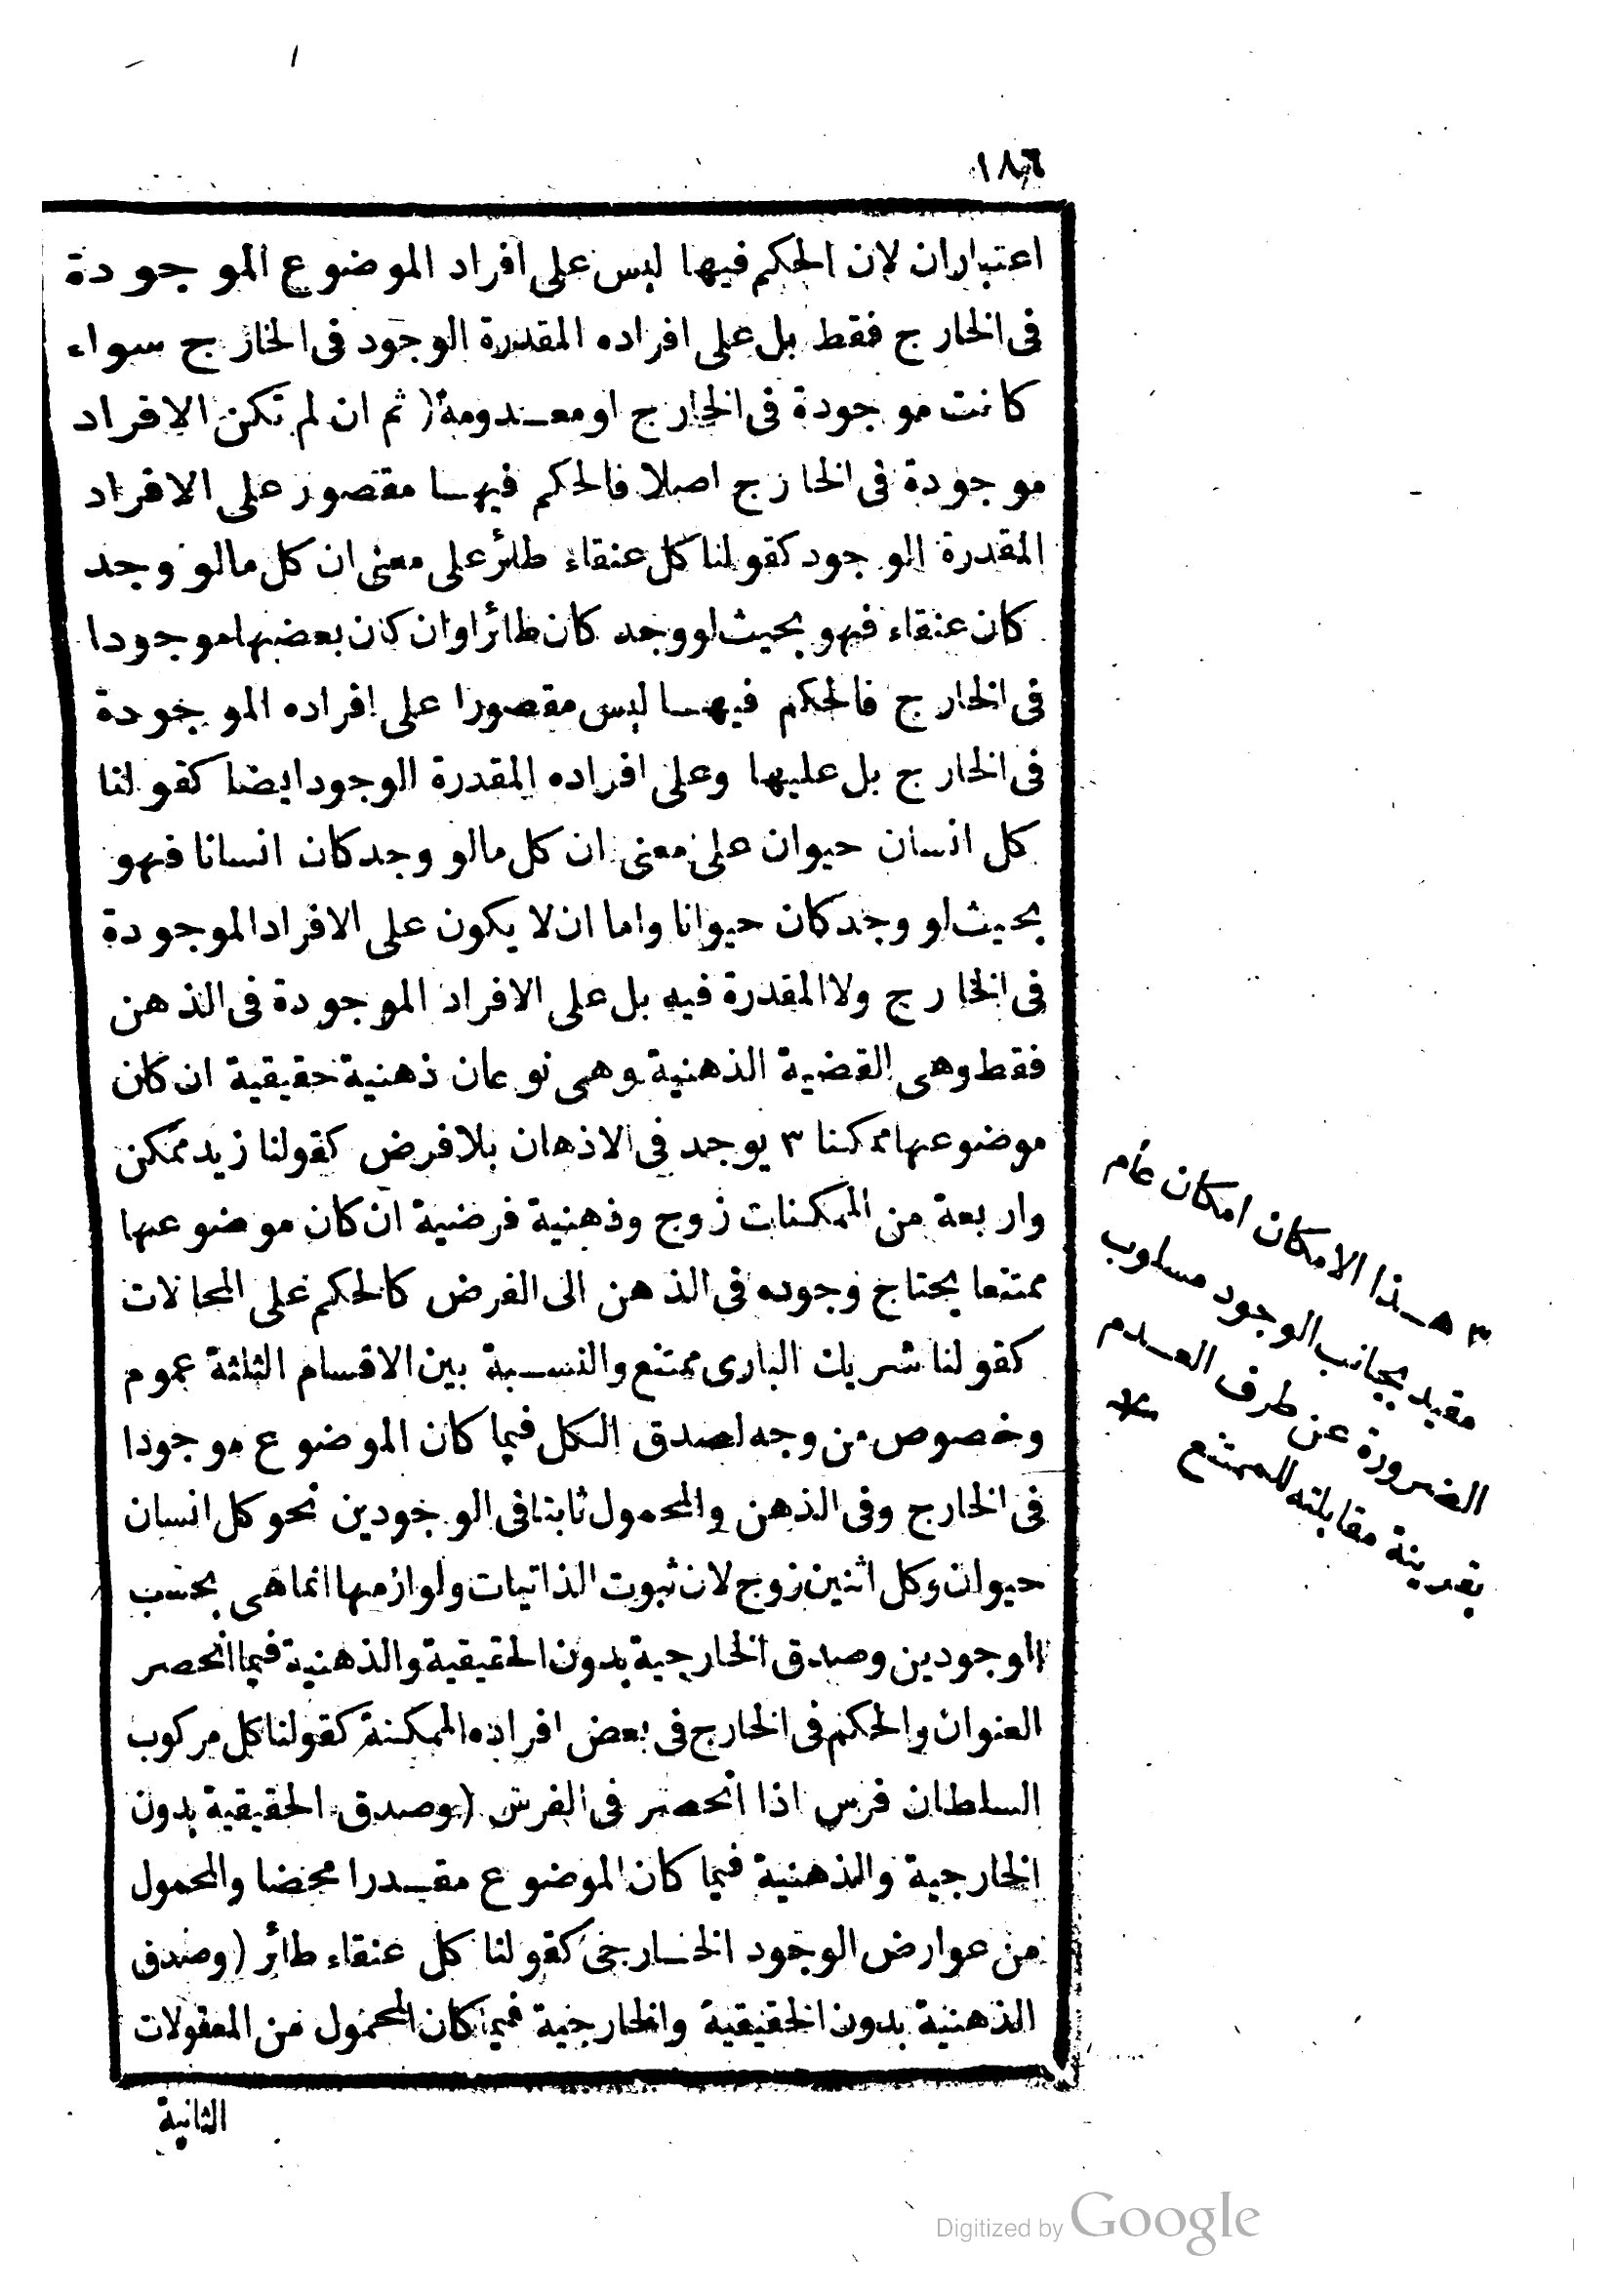 ١٨٦
اعتباران لان الحكم فيها ليس على افراد الموضوع الموجودة
فى الخارج فقط بل على افراده المقدرة الوجود فى الخارج سواء
كانت موجودة فى الخارج او معدومة ( ثم ان لم تكن الافراد
موجودة فى الخارج اصلا فالحكم فيها مقصور على الافراد
المقدرة الوجود كقولنا كل عنقاء طائر على معنى ان كل مالو وجد
كان عنقاء فهو بحيث لو وجد كان طائرا وان كان بعضها موجودا
فى الخارج فالحكم فيها ليس مقصورا على افراده الموجودة
فى الخارج بل عليها وعلى افراده المقدرة الوجود ايضا كقولنا
كل انسان حيوان على معنى ان كل مالو وجد كان انسانا فهو
بحيث لو وجد كان حيوانا واما ان لا يكون على الافراد الموجودة
فى الخارج ولا المقدرة فيه بل على الافراد الموجودة فى الذهن
فقط وهى القضية الذهنية وهى نوعان ذهنية حقيقية ان كان
موضوعها ممكنا ٣ يوجد فى الاذهان بلا فرض كقولنا زيد ممكن
واربعة من الممكنات زوج وذهنية فرضية ان كان موضوعها
ممتنعا يحتاج وجوده فى الذهن الى الفرض كالحكم على المحالات
كقولنا شريك البارى ممتنع والنسبة بين الاقسام الثلثة عموم
وخصوص من وجه لصدق الكل فيما كان الموضوع موجودا
فى الخارج وفى الذهن والمحمول ثابتا فى الوجودين نحو كل انسان
حيوان وكل اثنين زوج لان ثبوت الذاتيات ولوازمها انما هى بحسب
الوجودين وصدق الخارجية بدون الحقيقية والذهنية فيما انحصر
العنوان والحكم فى الخارج فى بعض افراده الممكنة كقولنا كل مركوب
السلطان فرس اذا انحصر فى الفرس ( وصدق الحقيقية بدون
الخارجية والذهنية فيما كان الموضوع مقدرا محضا والمحمول
من عوارض الوجود الخارجى كقولنا كل عنقاء طائر ( وصدق
الذهنية بدون الحقيقية والخارجية فيما كان المحمول من المعقولات
الثانية
٣ هذا الامكان امكان عام
مقيد بجانب الوجود مسلوب
الضرورة عن طرف العدم
بقرينة مقابلته للممتنع *
Digitized by Google